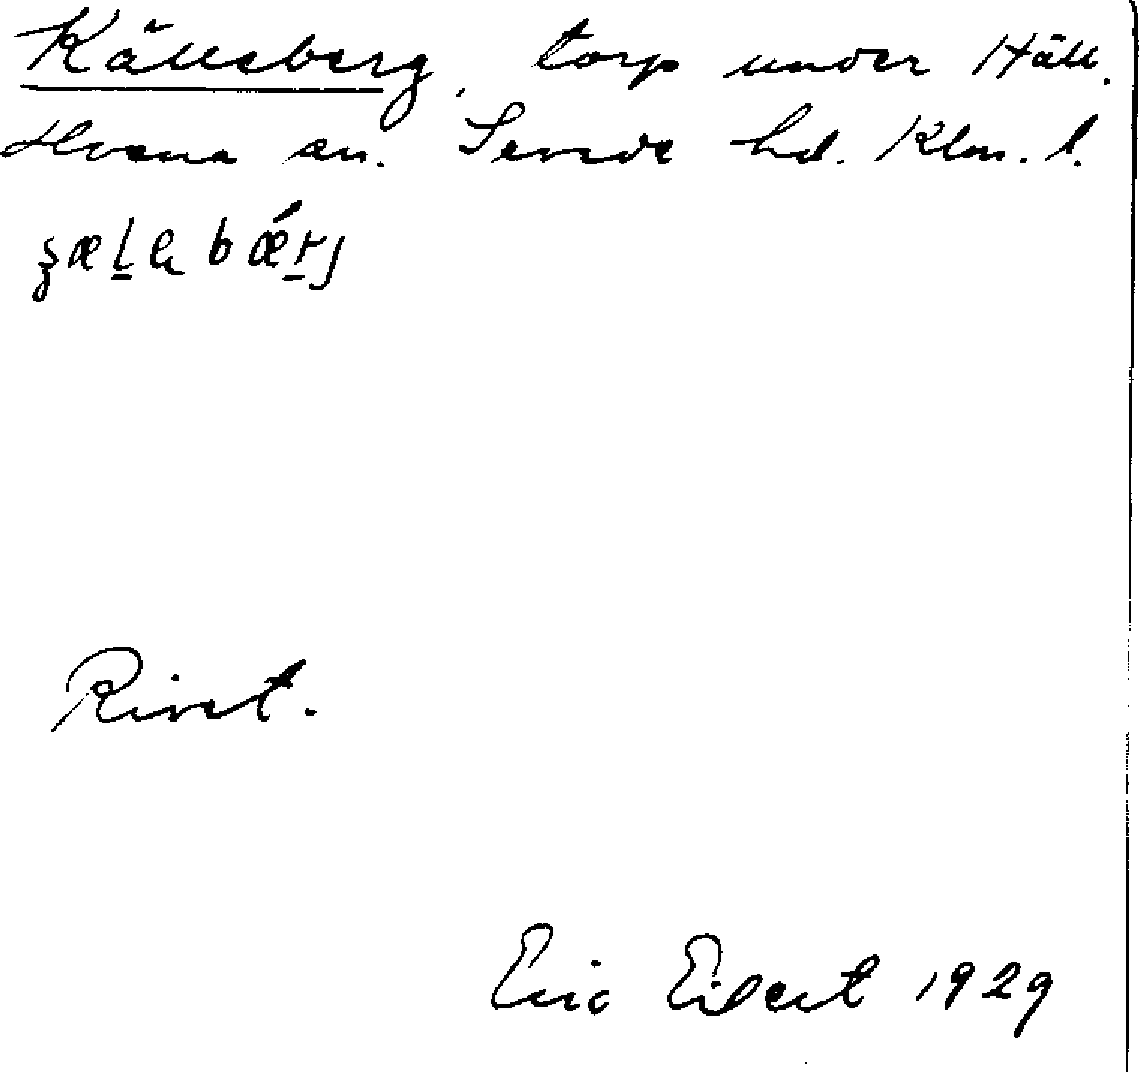 Källeberg, torp under Häll.
Hvena sn. Sevede hd. Klm. l.
Rivet.
Eric Elgert 1929